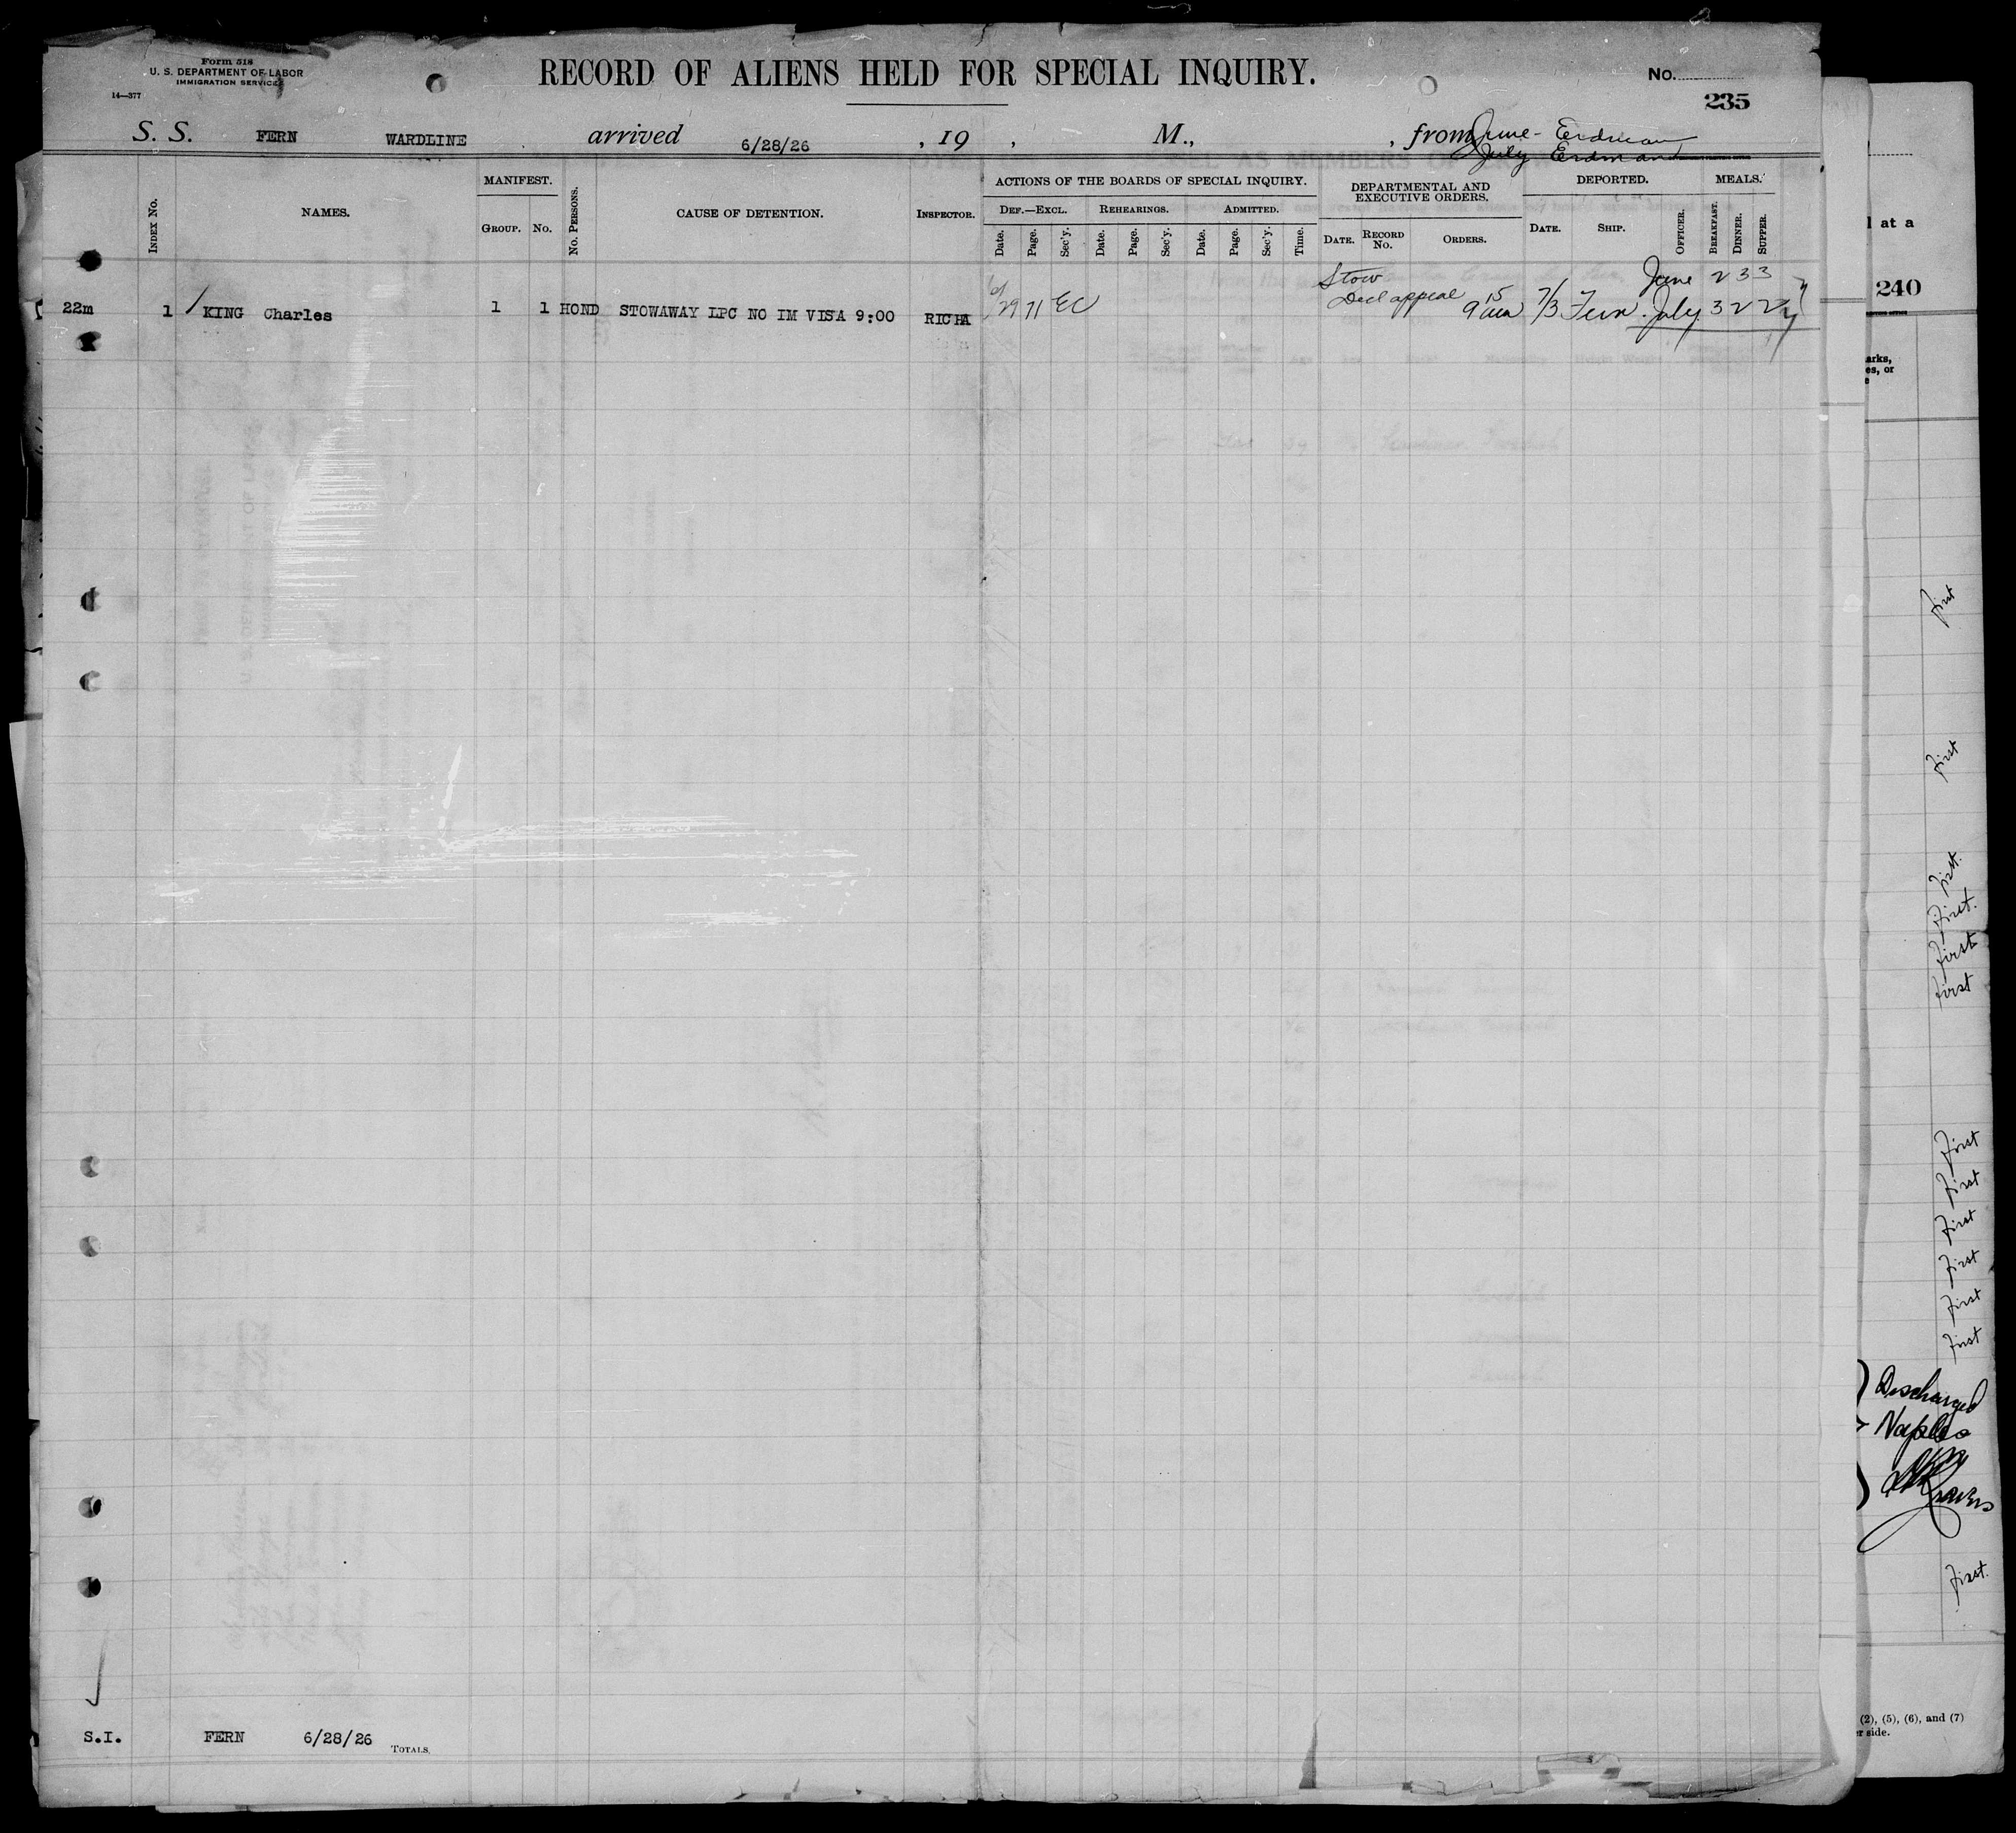 Form 518
U. S. DEPARTMENT OF LABOR
IMMIGRATION SERVICE
14—377
RECORD OF ALIENS HELD FOR SPECIAL INQUIRY.
No.
235
S. S. FERN WARDLINE arrived 6/28/26 , 19 , M., , from June - Erdman
July Erdman
INDEX NO.
NAMES.
MANIFEST.
GROUP. NO.
NO. PERSONS.
CAUSE OF DETENTION.
INSPECTOR.
ACTIONS OF THE BOARDS OF SPECIAL INQUIRY.
DEF.—EXCL. REHEARINGS. ADMITTED.
Date. Page. Sec'y. Date. Page. Sec'y. Date. Page. Sec'y. Time.
DEPARTMENTAL AND
EXECUTIVE ORDERS.
DATE. RECORD NO. ORDERS.
DEPORTED.
DATE. SHIP. OFFICER.
MEALS.
BREAKFAST. DINNER. SUPPER.
Stow June 2 3 3
22m 1 KING Charles 1 1 HOND STOWAWAY LPC NO IM VISA 9:00 RICHA 6/29 71 EC Decl appeal 9 15 am 7/3 Fern July 3 2 2
S.I. FERN 6/28/26 TOTALS.
l at a
240
arks,
es, or
e
first
first
first.
first.
first
first
first
first
first
first
first
first
Discharged
Naples
first.
(2), (5), (6), and (7)
er side.